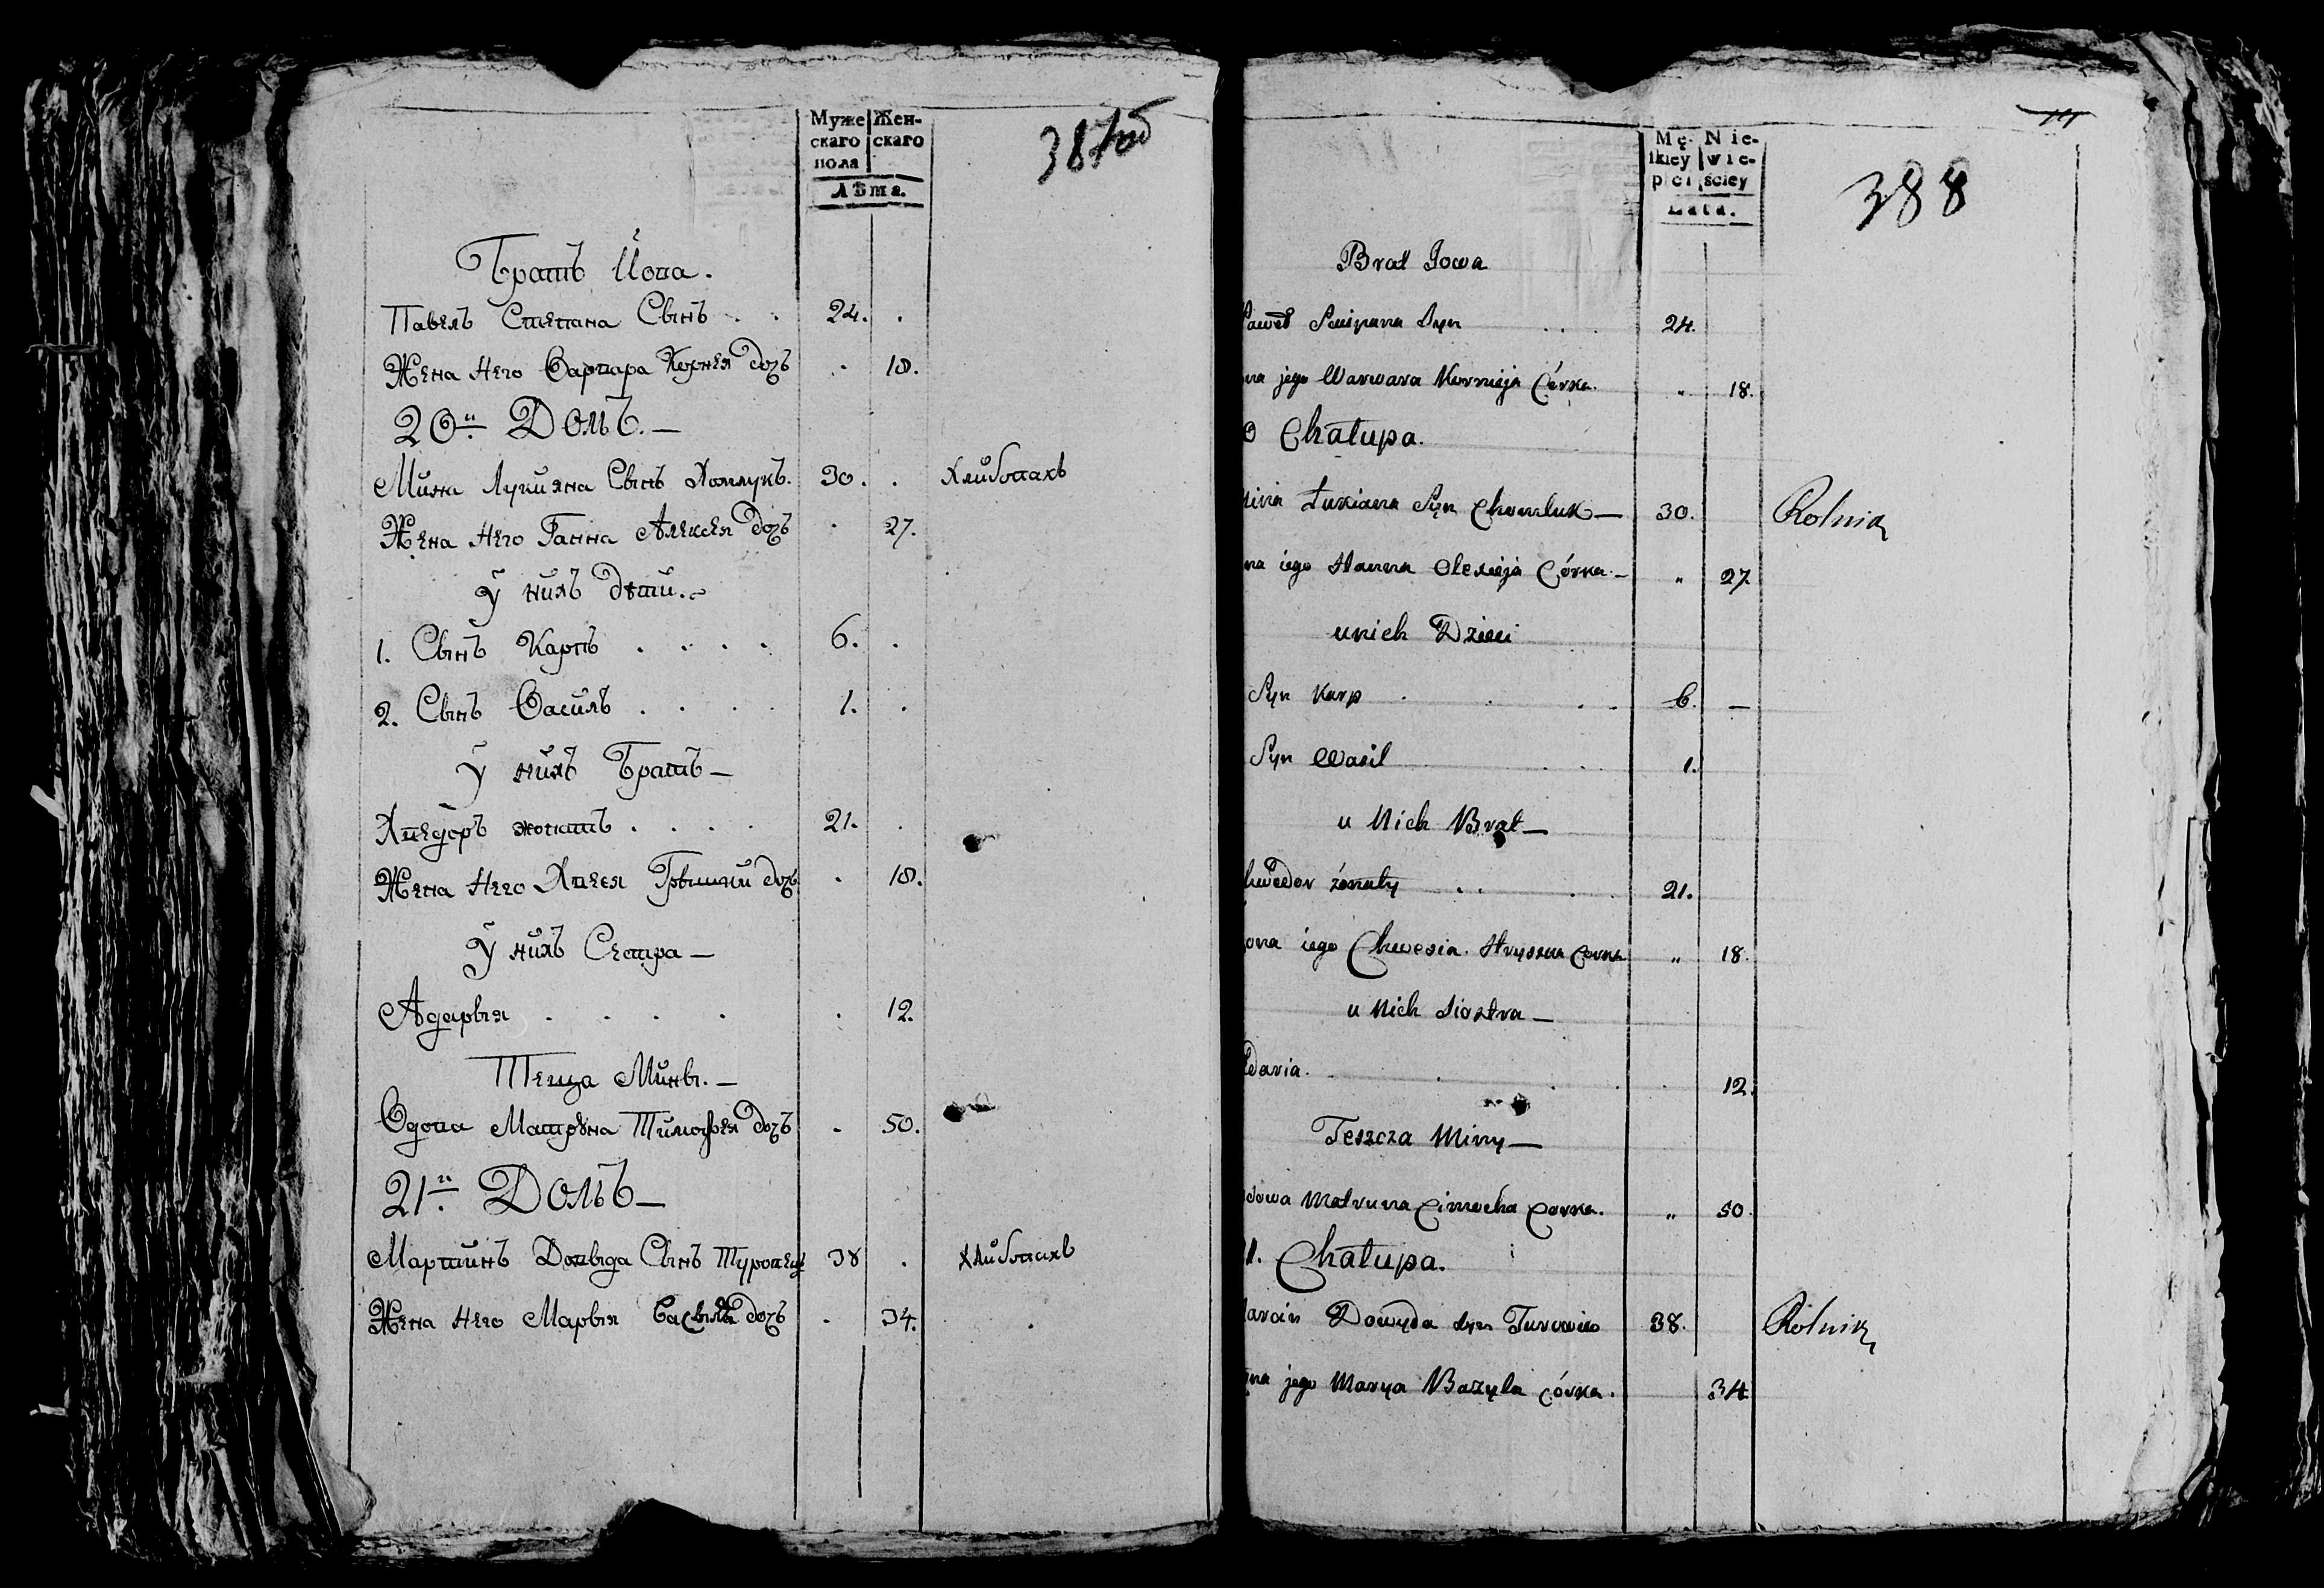 Муже Жен-
скаго скаго
пола
Лѣта.
387об
Братъ Йова.
Павелъ Степана Сынъ . . 24. .
Жена Него Варвара Корнея дочъ . 18.
20й Домъ.—
Мина Лукияна Сынъ Хомлукъ. 30. . Хлиборахъ
Жена Него Ганна Алексея дочъ . 27.
у нихъ дѣти.
1. Сынъ Карпъ . . . . 6. .
2. Сынъ Василъ . . . . 1. .
у нихъ Братъ—
Хведоръ жонатъ . . . . 21. .
Жена Него Хвеся Грышки дочъ . 18.
у нихъ Сестра—
Адарыя . . . . . 12.
Теща Мины.—
Вдова Матруна Тимофея дочъ . 50.
21й Домъ—
Мартинъ Довыда Сынъ Туровец 38 . хлиборахъ
Жена Него Марыя Васыля дочъ . 34.
Mę- Nie-
skiey wie-
płci ściey
Lata.
388
Brat Jowa
Paweł Scipana Syn . . . 24.
na jego Warwara Kornieja Córka. " 18.
0 Chałupa.
Mina Łukiana Syn Chomluk— 30. Rolnik
na iego Hanna Olexieja Córka.— " 27
unich Dzieci
Syn Karp . . . . 6. —
Syn Wasil . . 1.
u Nich Brat—
Chwedor żonaty . . . 21.
ona iego Chwesia Hryszki Corka " 18.
u Nich Siostra—
Adaria. . . . . . 12.
Teszcza Miny—
dowa Matruna Cimocha Corka. " 50.
21. Chałupa.
Marcin Dowyda Syn Turowiec 38. Rolnik
na jego Marya Bazyla Córka. 34